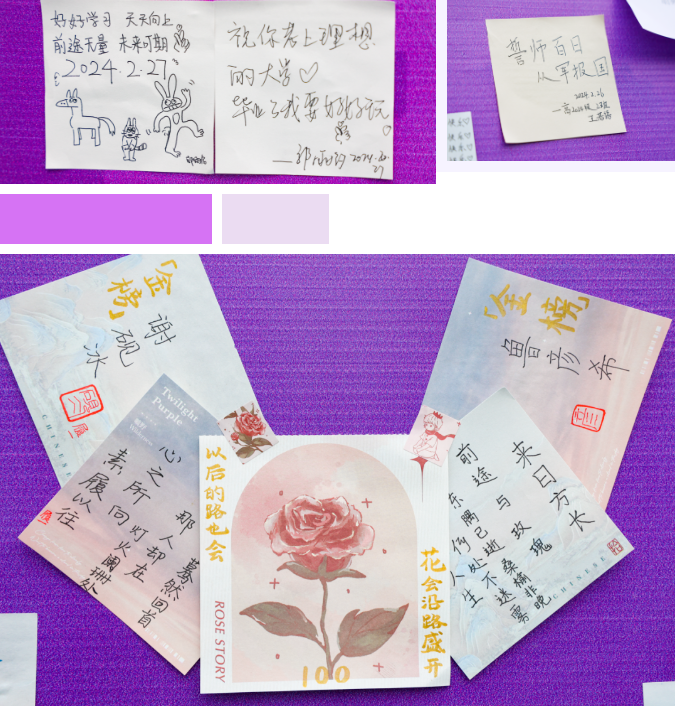 好好学习 天天向上
前途无量 未来可期
2024.2.27
祝你考上理想
的大学♡
毕业了我要好好玩
2024.
27
誓师百日
从军报国
2024.2.26
「金榜」
谢砚冰
CHINESE
Twilight
Purple
心之所向
素履以往
那人
蓦然回首
却在
灯火阑珊处
以后的路也会
花会沿路盛开
ROSE STORY
100
「金榜」
鲁彦希
来日方长
前途与玫瑰
东隅已逝桑榆非晚
人生
CHINESE